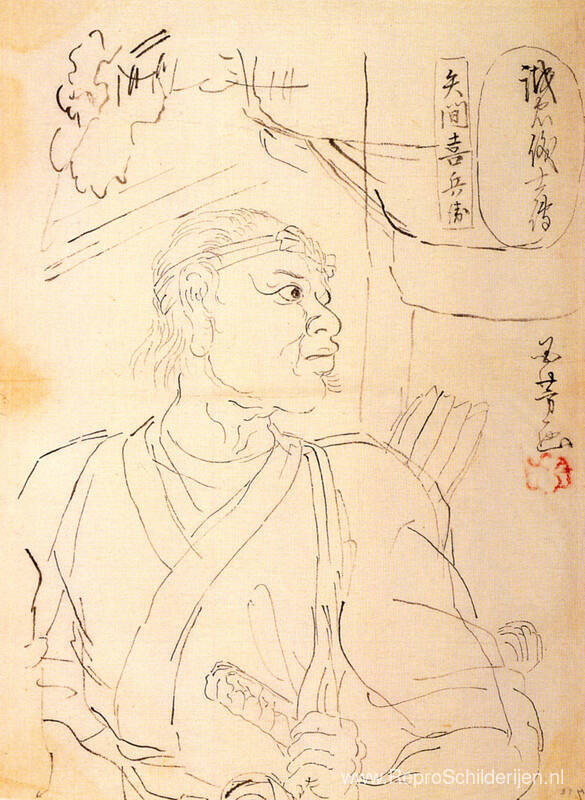 誠忠義士傳
矢間喜兵衛
国芳画
www.ReproSchilderijen.nl